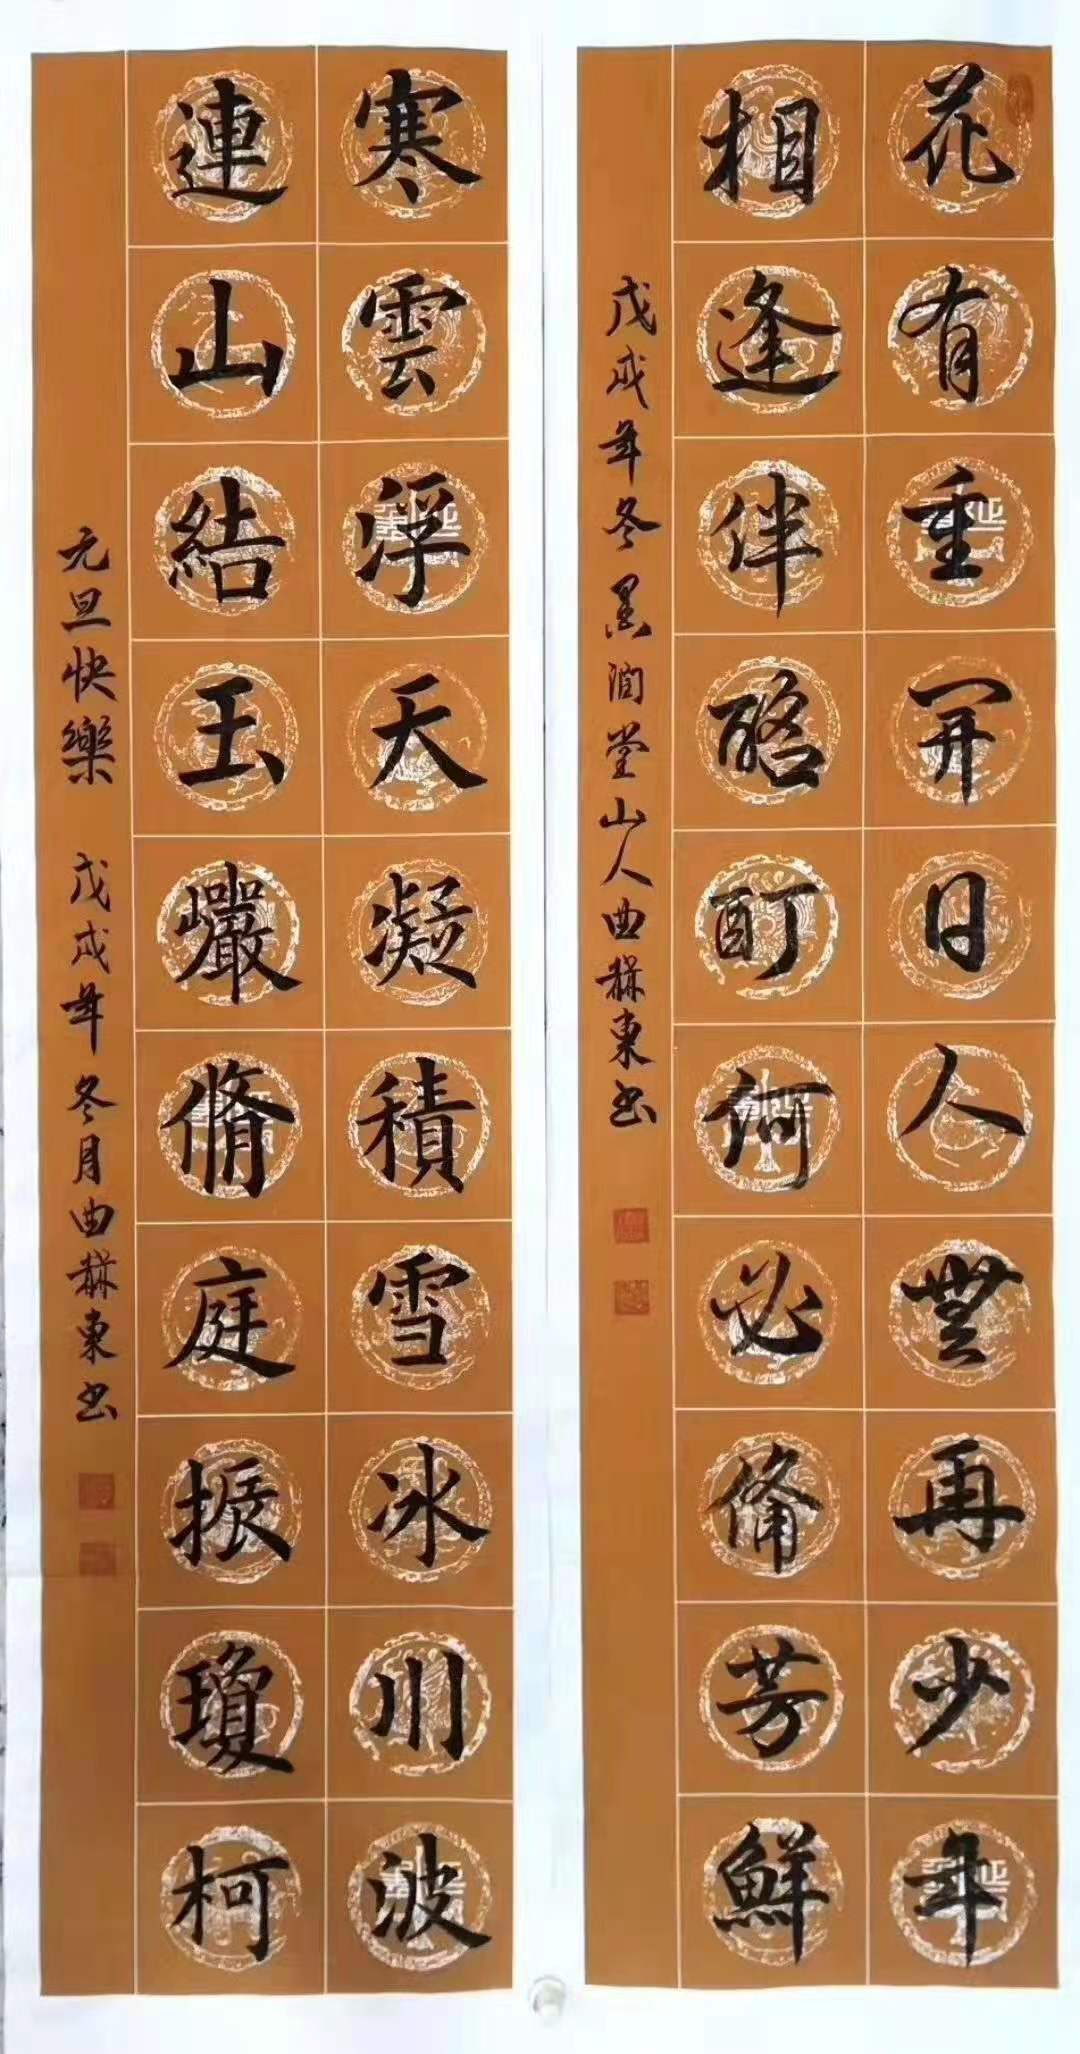 花有重開日人無再少年
相逢伴酩酊何必備芳鮮
戊戌年冬墨潤堂山人曲東書
寒雲浮天凝積雪冰川波
連山結玉巖脩庭振瓊柯
元旦快樂 戊戌年冬月曲東書